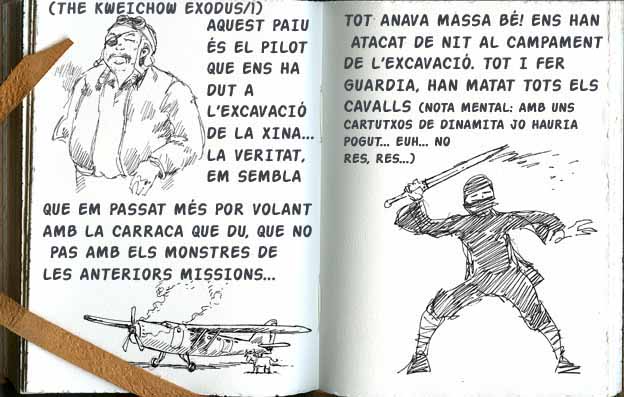 (THE KWEICHOW EXODUS/1)
AQUEST PAIU
ÉS EL PILOT
QUE ENS HA
DUT A
L'EXCAVACIÓ
DE LA XINA...
LA VERITAT,
EM SEMBLA
QUE EM PASSAT MÉS POR VOLANT
AMB LA CARRACA QUE DU, QUE NO
PAS AMB ELS MONSTRES DE
LES ANTERIORS MISSIONS...
TOT ANAVA MASSA BÉ! ENS HAN
ATACAT DE NIT AL CAMPAMENT
DE L'EXCAVACIÓ. TOT I FER
GUARDIA, HAN MATAT TOTS ELS
CAVALLS (NOTA MENTAL: AMB UNS
CARTUTXOS DE DINAMITA JO HAURIA
POGUT... EUH... NO
RES, RES...)